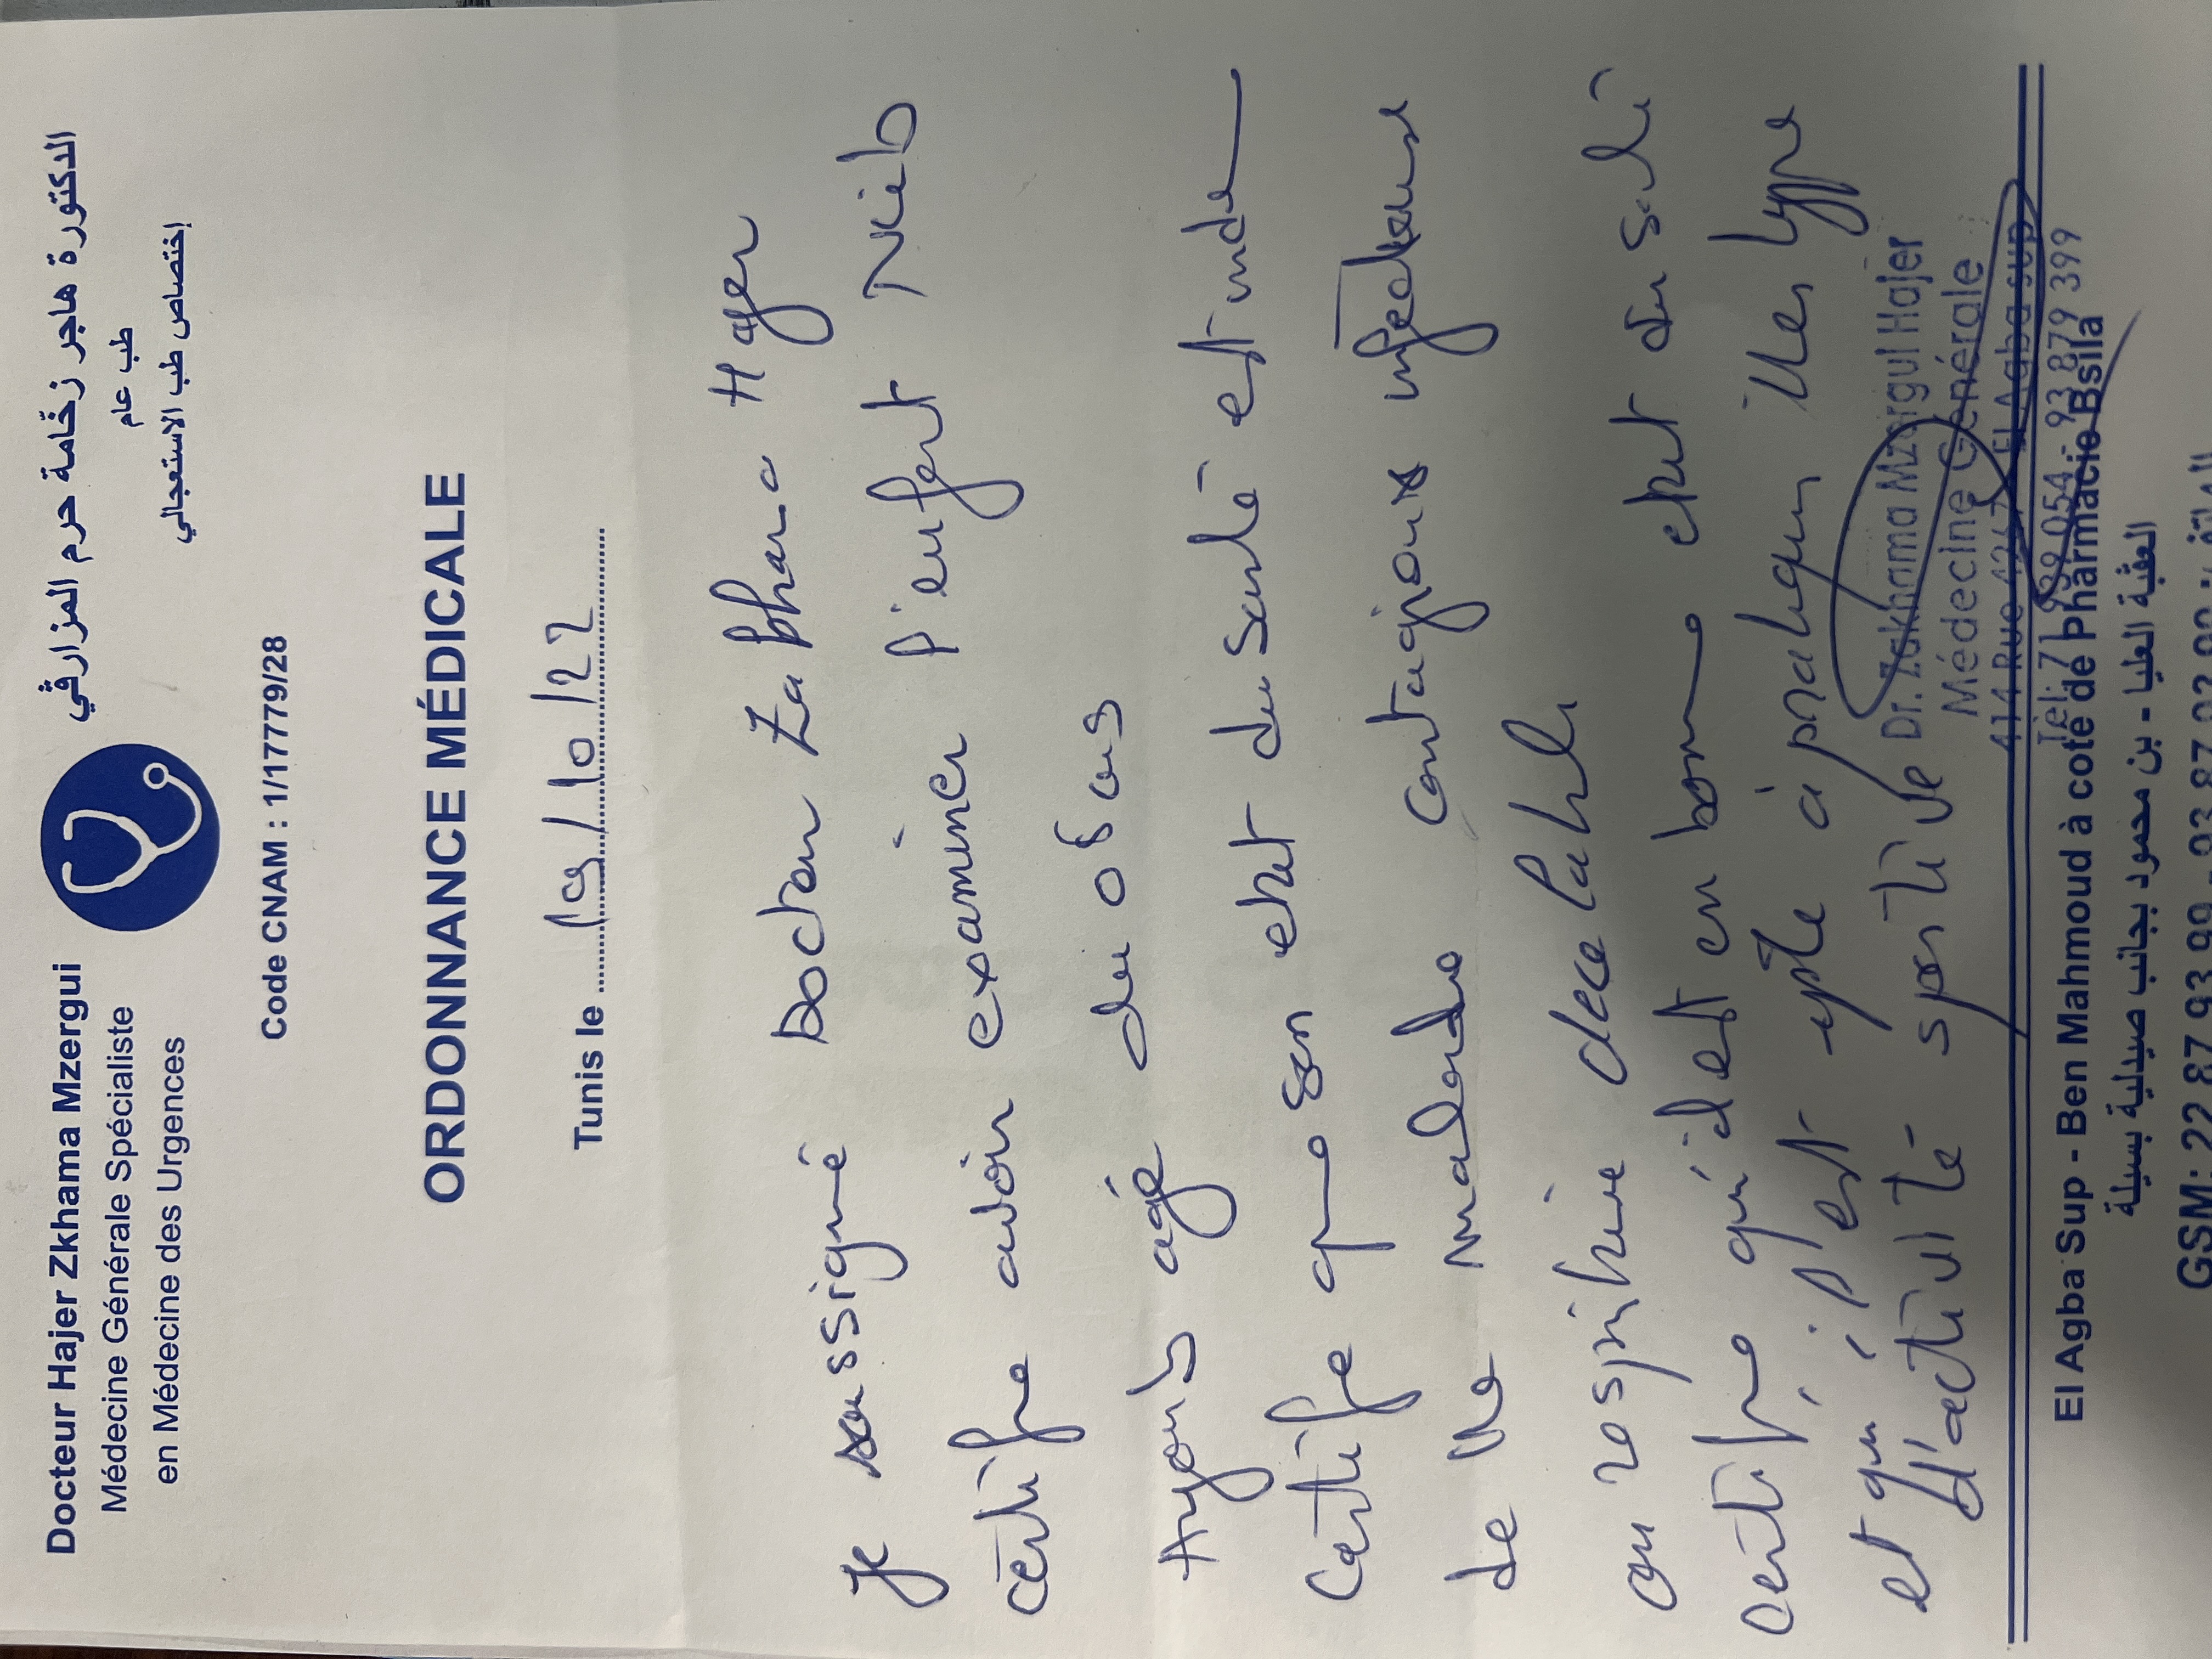 Docteur Hajer Zkhama Mzergui
Médecine Générale Spécialiste
en Médecine des Urgences
الدكتورة هاجر زخّامة حرم المزارقي
طب عام
إختصاص طب الاستعجالي
Code CNAM : 1/17779/28
ORDONNANCE MÉDICALE
Tunis le 19/10/22
Je soussigné Docteur Zakhama Hajer
certifie avoir examiner l'enfant
Ayoub agé de 08 ans
certifie que son etat de santé est indemne
de maladie contagieux infectieuse
ou respiratoire decelable
certifie qu'il est en bonne etat de santé
et qu'il est apte à pratiquer type
d'activité sportive
Dr. Zakhama Mzargui Hajer
Médecine Générale
El Agba sup
93 879 399
El Agba Sup - Ben Mahmoud à coté de Pharmacie Bsila
العڨبة العليا - بن محمود بجانب صيدلية بسيلة
GSM: 22 87 93 99 -